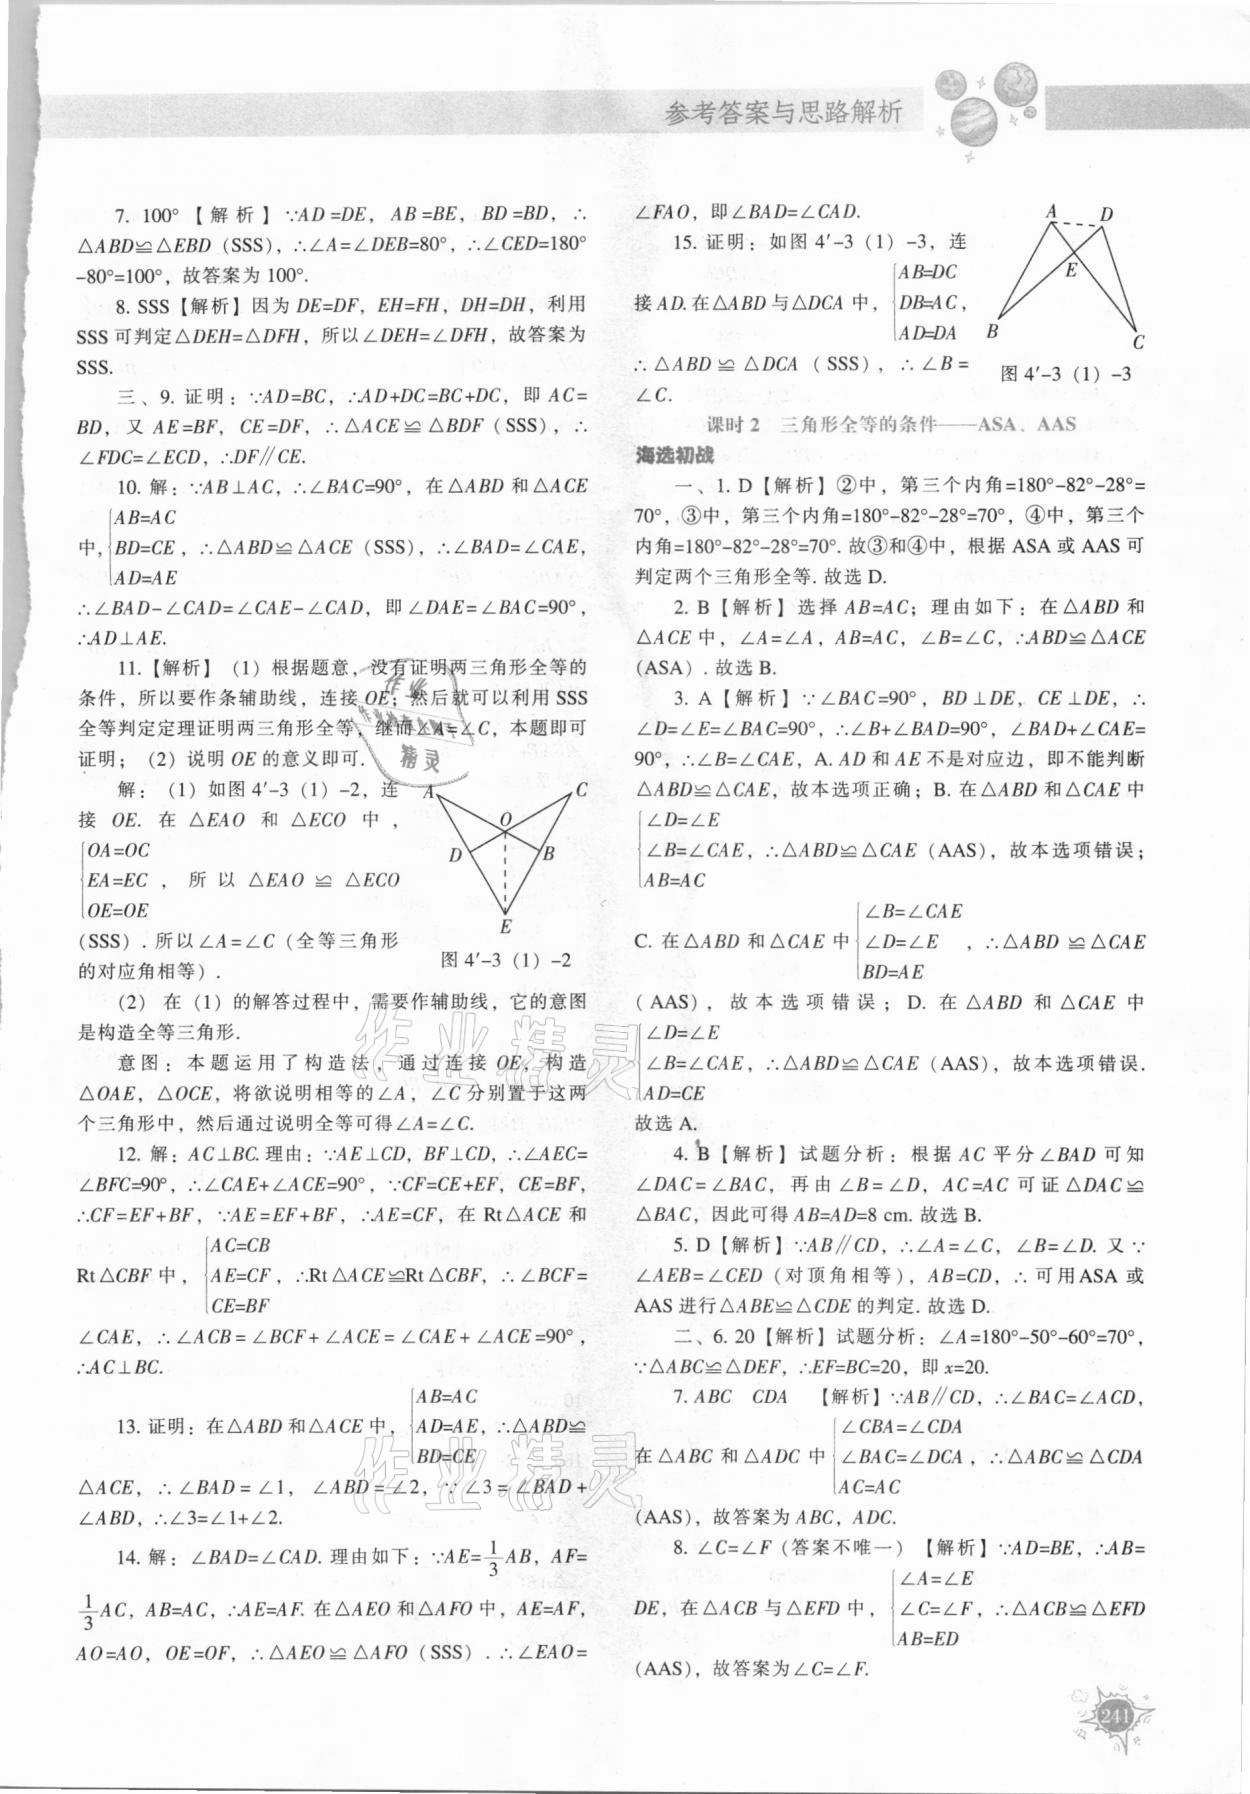 参考答案与思路解析
7. 100°【解析】∵AD=DE，AB=BE，BD=BD，∴
△ABD≌△EBD（SSS），∴∠A=∠DEB=80°，∴∠CED=180°
-80°=100°，故答案为 100°.
8. SSS【解析】因为 DE=DF，EH=FH，DH=DH，利用
SSS 可判定△DEH=△DFH，所以∠DEH=∠DFH，故答案为
SSS.
三、9. 证明：∵AD=BC，∴AD+DC=BC+DC，即 AC=
BD，又 AE=BF，CE=DF，∴△ACE≌△BDF（SSS），∴
∠FDC=∠ECD，∴DF∥CE.
10. 解：∵AB⊥AC，∴∠BAC=90°，在△ABD 和△ACE
AB=AC
中，BD=CE，∴△ABD≌△ACE（SSS），∴∠BAD=∠CAE，
AD=AE
∴∠BAD-∠CAD=∠CAE-∠CAD，即∠DAE=∠BAC=90°，
∴AD⊥AE.
11.【解析】（1）根据题意，没有证明两三角形全等的
条件，所以要作条辅助线，连接 OE；然后就可以利用 SSS
全等判定定理证明两三角形全等，继而∠A=∠C，本题即可
证明；（2）说明 OE 的意义即可.
解：（1）如图 4′-3（1）-2，连
接 OE. 在△EAO 和△ECO 中，
OA=OC
EA=EC，所以△EAO≌△ECO
OE=OE
（SSS）. 所以∠A=∠C（全等三角形
的对应角相等）.
A
C
O
D
B
E
图 4′-3（1）-2
（2）在（1）的解答过程中，需要作辅助线，它的意图
是构造全等三角形.
意图：本题运用了构造法，通过连接 OE，构造
△OAE，△OCE，将欲说明相等的∠A，∠C 分别置于这两
个三角形中，然后通过说明全等可得∠A=∠C.
12. 解：AC⊥BC. 理由：∵AE⊥CD，BF⊥CD，∴∠AEC=
∠BFC=90°，∴∠CAE+∠ACE=90°，∵CF=CE+EF，CE=BF，
∴CF=EF+BF，∵AE=EF+BF，∴AE=CF，在 Rt△ACE 和
AC=CB
Rt△CBF 中，AE=CF，∴Rt△ACE≌Rt△CBF，∴∠BCF=
CE=BF
∠CAE，∴∠ACB=∠BCF+∠ACE=∠CAE+∠ACE=90°，
∴AC⊥BC.
AB=AC
13. 证明：在△ABD 和△ACE 中，AD=AE，∴△ABD≌
BD=CE
△ACE，∴∠BAD=∠1，∠ABD=∠2，∵∠3=∠BAD+
∠ABD，∴∠3=∠1+∠2.
14. 解：∠BAD=∠CAD. 理由如下：∵AE=1/3AB，AF=
1/3AC，AB=AC，∴AE=AF. 在△AEO 和△AFO 中，AE=AF，
AO=AO，OE=OF，∴△AEO≌△AFO（SSS）. ∴∠EAO=
∠FAO，即∠BAD=∠CAD.
15. 证明：如图 4′-3（1）-3，连
AB=DC
接 AD. 在△ABD 与△DCA 中，DB=AC，
AD=DA
∴△ABD≌△DCA（SSS），∴∠B=
∠C.
A
D
E
B
C
图 4′-3（1）-3
课时 2 三角形全等的条件——ASA、AAS
海选初战
一、1. D【解析】②中，第三个内角=180°-82°-28°=
70°，③中，第三个内角=180°-82°-28°=70°，④中，第三个
内角=180°-82°-28°=70°. 故③和④中，根据 ASA 或 AAS 可
判定两个三角形全等. 故选 D.
2. B【解析】选择 AB=AC；理由如下：在△ABD 和
△ACE 中，∠A=∠A，AB=AC，∠B=∠C，∴ABD≌△ACE
（ASA）. 故选 B.
3. A【解析】∵∠BAC=90°，BD⊥DE，CE⊥DE，∴
∠D=∠E=∠BAC=90°，∴∠B+∠BAD=90°，∠BAD+∠CAE=
90°，∴∠B=∠CAE，A. AD 和 AE 不是对应边，即不能判断
△ABD≌△CAE，故本选项正确；B. 在△ABD 和△CAE 中
∠D=∠E
∠B=∠CAE，∴△ABD≌△CAE（AAS），故本选项错误；
AB=AC
∠B=∠CAE
C. 在△ABD 和△CAE 中∠D=∠E，∴△ABD≌△CAE
BD=AE
（AAS），故本选项错误；D. 在△ABD 和△CAE 中
∠D=∠E
∠B=∠CAE，∴△ABD≌△CAE（AAS），故本选项错误.
AD=CE
故选 A.
4. B【解析】试题分析：根据 AC 平分∠BAD 可知
∠DAC=∠BAC，再由∠B=∠D，AC=AC 可证△DAC≌
△BAC，因此可得 AB=AD=8 cm. 故选 B.
5. D【解析】∵AB∥CD，∴∠A=∠C，∠B=∠D. 又∵
∠AEB=∠CED（对顶角相等），AB=CD，∴可用 ASA 或
AAS 进行△ABE≌△CDE 的判定. 故选 D.
二、6. 20【解析】试题分析：∠A=180°-50°-60°=70°，
∵△ABC≌△DEF，∴EF=BC=20，即 x=20.
7. ABC CDA 【解析】∵AB∥CD，∴∠BAC=∠ACD，
∠CBA=∠CDA
在△ABC 和△ADC 中∠BAC=∠DCA，∴△ABC≌△CDA
AC=AC
（AAS），故答案为 ABC，ADC.
8. ∠C=∠F（答案不唯一）【解析】∵AD=BE，∴AB=
∠A=∠E
DE，在△ACB 与△EFD 中，∠C=∠F，∴△ACB≌△EFD
AB=ED
（AAS），故答案为∠C=∠F.
241
作业精灵
作业精灵
作业
精灵